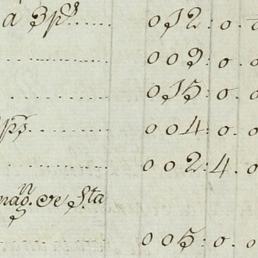 à 3 p.s ........ 012: 0. 0
........ 009: 0. 0
........ 015: 0. 0
p.s ........ 004: 0. 0
........ 002: 4. 0
de Sta
........ 005: 0. 0